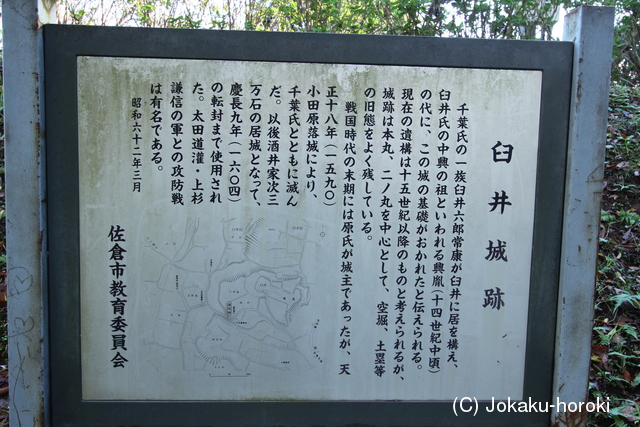 臼井城跡
千葉氏の一族臼井六郎常康が臼井に居を構え、
臼井氏の中興の祖といわれる興胤（十四世紀中頃）
の代に、この城の基礎がおかれたと伝えられる。
現在の遺構は十五世紀以降のものと考えられるが、
城跡は本丸、二ノ丸を中心として、空堀、土塁等
の旧態をよく残している。
戦国時代の末期には原氏が城主であったが、天
正十八年（一五九〇）
小田原落城により、
千葉氏とともに滅ん
だ。以後酒井家次三
万石の居城となって、
慶長九年（一六〇四）
の転封まで使用され
た。太田道灌・上杉
謙信の軍との攻防戦
は有名である。
昭和六十二年三月
佐倉市教育委員会
(C) Jokaku-horoki